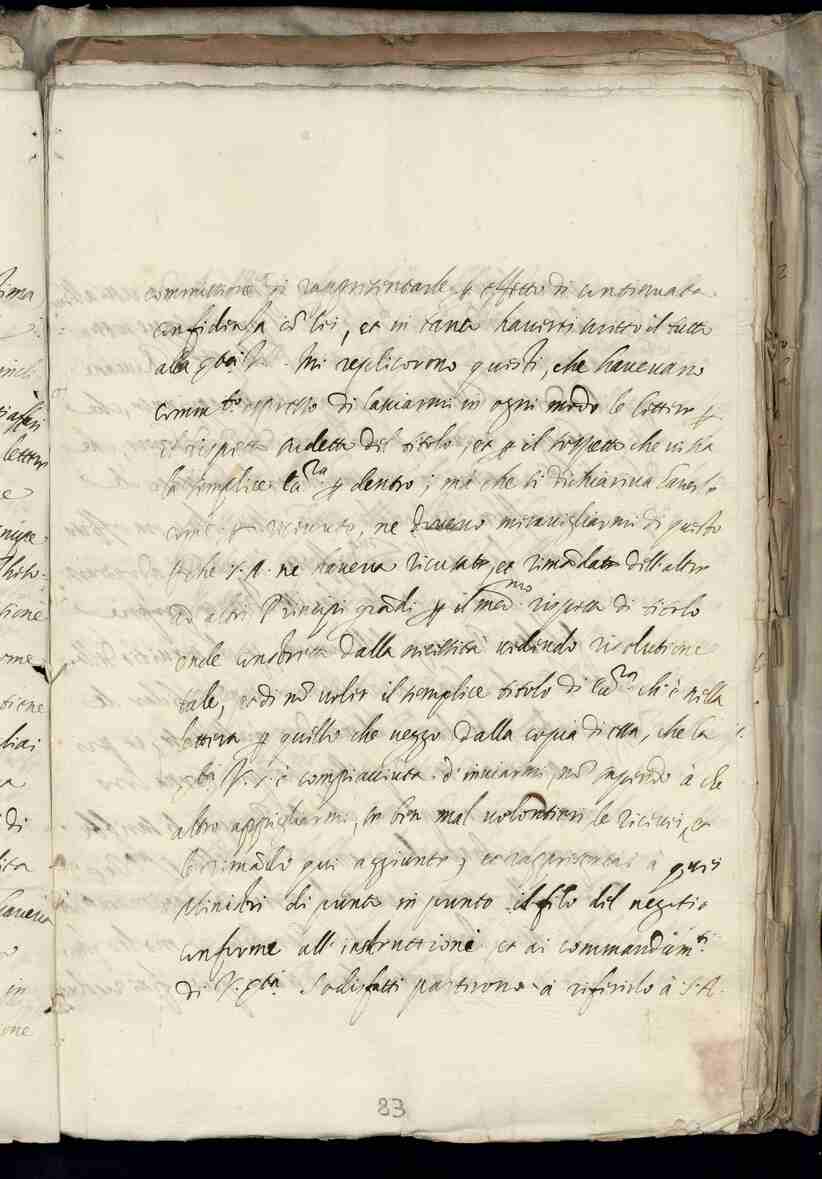 commissione di rappresentarle p effetto di continuata
confidenza cõ lei, et in tanto haverti scritto il tutto
alla Mi replicorono questi, che havevano
comm.to espresso di lasciarmi in ogni modo le lettere p
il rispetto sudetto del titolo, et p il sospetto che vi sia
la semplice p dentro; ma che si dichiariva haverle
come p ricevute, ne devevo miravigliarmi di questo
che S. A. ne haveva ricusate, et rimãdate dell'altre
ad altri Principi grãdi p il med.mo rispetto di titolo
onde constretto dalla necessità vedendo risolutione
tale, et di nõ voler il semplice titolo di ch'è nella
lettera p quello che veggo dalla copia di essa, che la
V. s'è compiacciuta d'inviarmi, nõ sapendo à che
altro appigliarmi, se ben mal volontieri le ricevei, et
le rimãdo qui aggiunte, et rappresentai à quei
Ministri di punto in punto il filo del negotio
conforme all'instruttione, et ai commandam.ti
di V. Sodisfatti partirono à riferirlo à S. A.
83